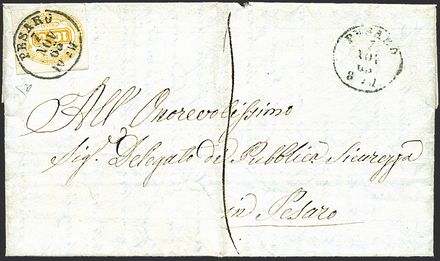 PESARO
7
NOV
63
PESARO
7
NOV
63
8
All' Onorevolissimo
Sig.r Delegato di Pubblica Sicurezza
in Pesaro